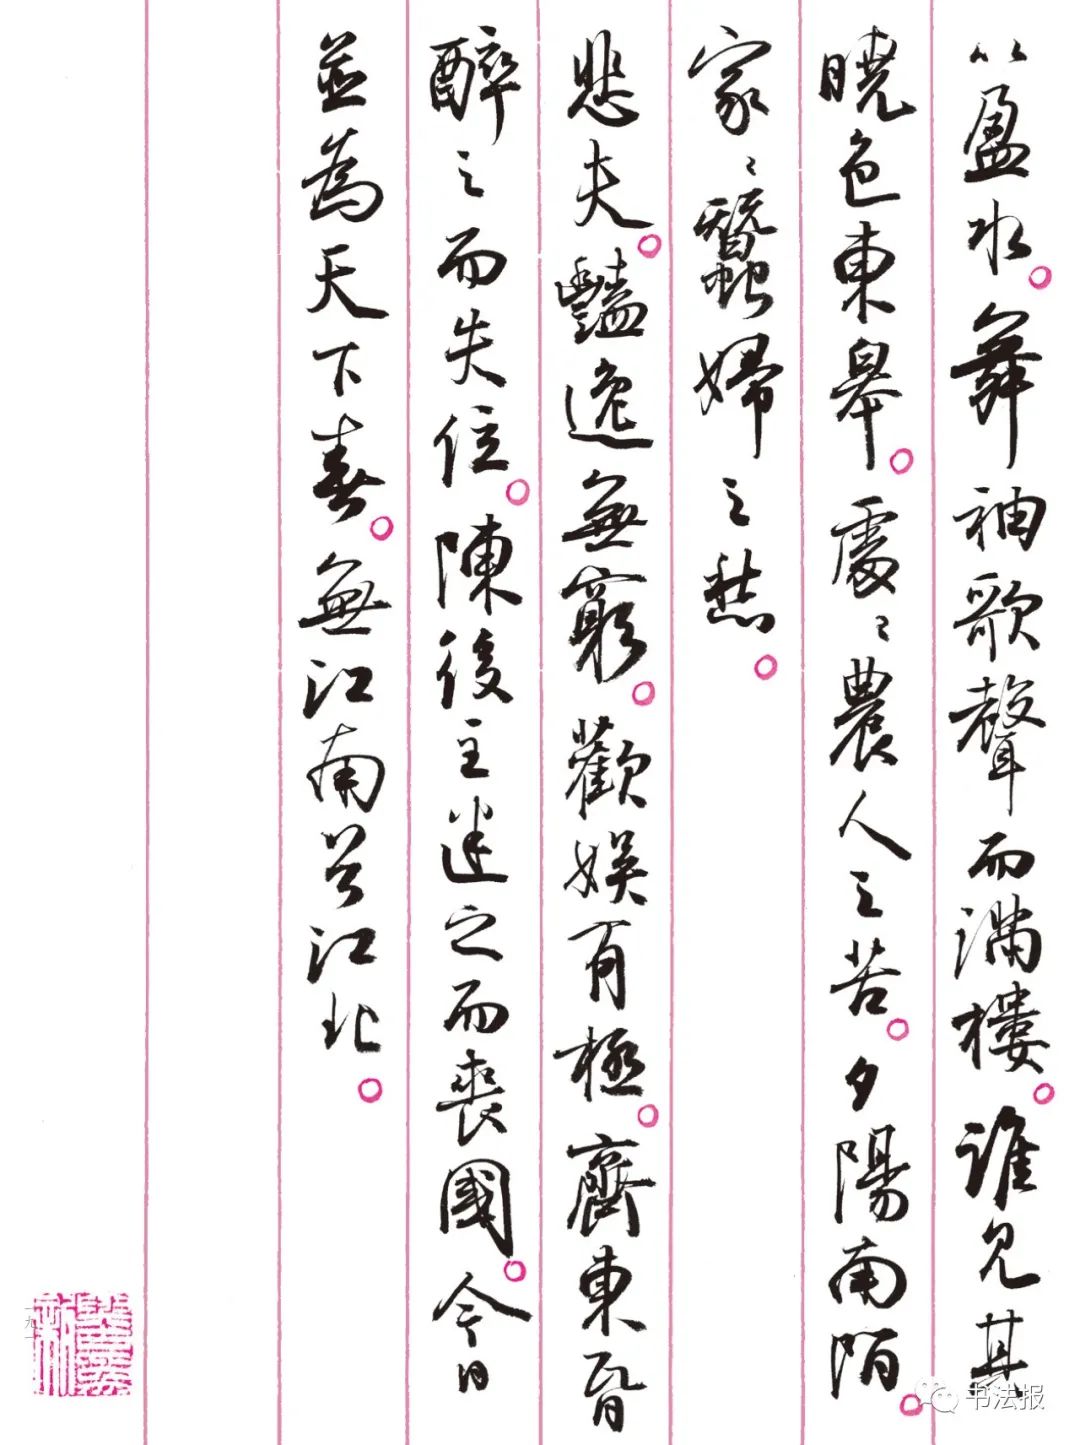 以盈水。舞袖歌聲而滿樓。誰見其
曉色東皋。處々農人之苦。夕陽南陌。
家々蠶婦之愁。
悲夫。豔逸無窮。歡娛有極。齊東昏
醉之而失位。陳後主迷之而喪國。今日
並為天下春。無江南兮江北。
书法报